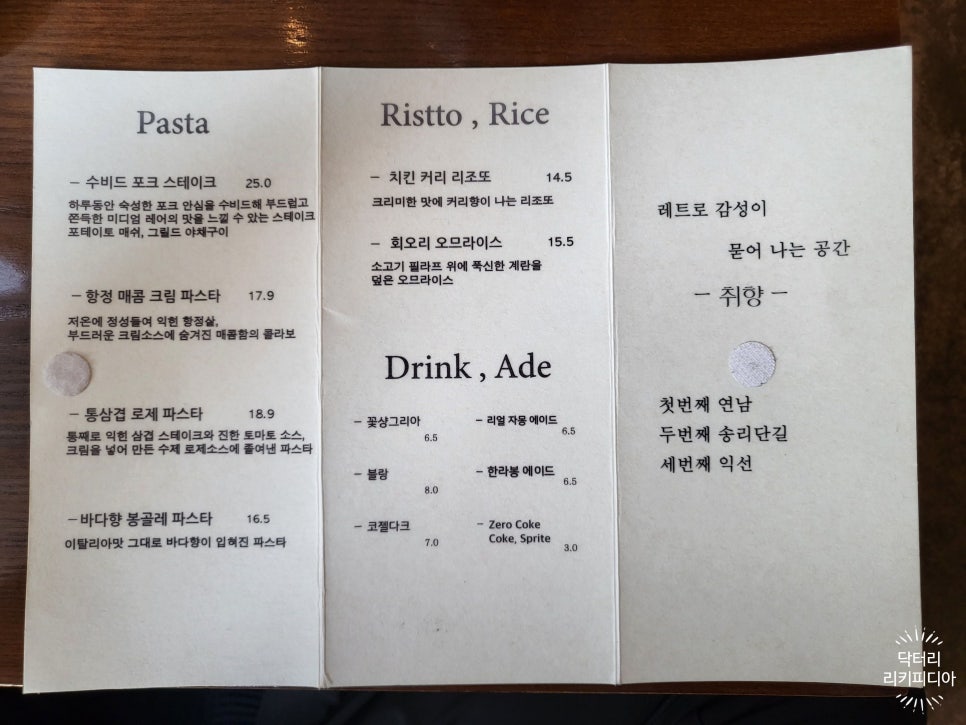 Pasta
– 수비드 포크 스테이크 25.0
하루동안 숙성한 포크 안심을 수비드해 부드럽고
쫀득한 미디엄 레어의 맛을 느낄 수 있는 스테이크
포테이토 매쉬, 그릴드 야채구이
– 항정 매콤 크림 파스타 17.9
저온에 정성들여 익힌 항정살,
부드러운 크림소스에 숨겨진 매콤함의 콜라보
– 통삼겹 로제 파스타 18.9
통째로 익힌 삼겹 스테이크와 진한 토마토 소스,
크림을 넣어 만든 수제 로제소스에 졸여낸 파스타
– 바다향 봉골레 파스타 16.5
이탈리아맛 그대로 바다향이 입혀진 파스타
Ristto , Rice
– 치킨 커리 리조또 14.5
크리미한 맛에 커리향이 나는 리조또
– 회오리 오므라이스 15.5
소고기 필라프 위에 푹신한 계란을
덮은 오므라이스
Drink , Ade
– 꽃샹그리아 6.5
– 리얼 자몽 에이드 6.5
– 블랑 8.0
– 한라봉 에이드 6.5
– 코젤다크 7.0
– Zero Coke
Coke, Sprite 3.0
레트로 감성이
묻어 나는 공간
– 취향 –
첫번째 연남
두번째 송리단길
세번째 익선
닥터리
리키피디아